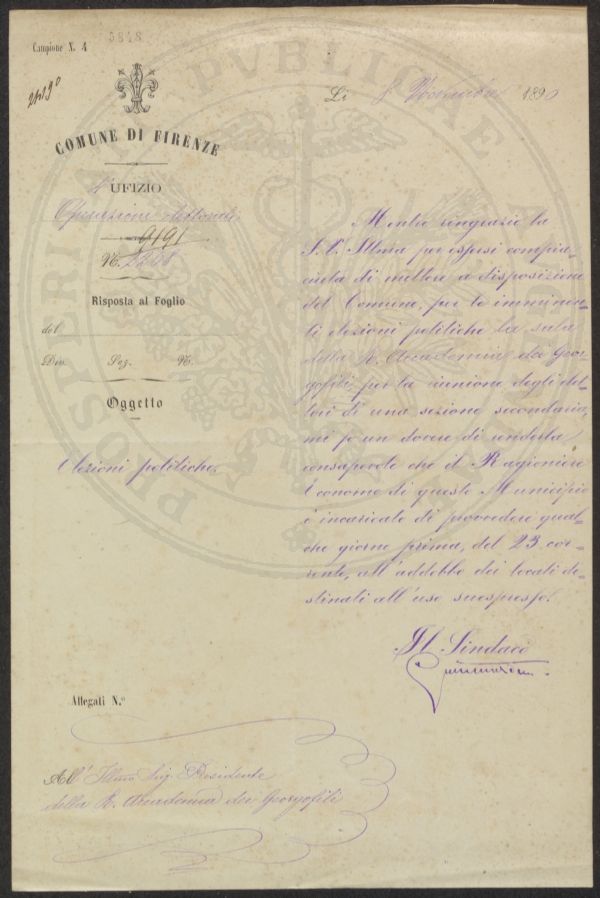 5848
Campione N. 4
Li 8 Novembre 1890
COMUNE DI FIRENZE
UFIZIO
Operazioni elettorali
9191
N. 2208
Risposta al Foglio
del
Div. Sez. N.
Oggetto
Elezioni politiche
Mentre ringrazio la
S. V. Illma per essersi compia-
ciuta di mettere a disposizione
del Comune, per le imminen-
ti elezioni politiche la sala
della R. Accademia dei Geor-
gofili, per la riunione degli elet-
tori di una sezione secondaria,
mi fo un dovere di renderla
consapevole che il Ragioniere
Economo di questo Municipio
è incaricato di provvedere qual-
che giorno prima, del 23 cor-
rente, all'addobbo dei locali de-
stinati all'uso suespresso.
Il Sindaco
Allegati N.º
All' Illmo Sig. Presidente
della R. Accademia dei Georgofili
PROSPERITATI PVBLICAE AVGENDAE